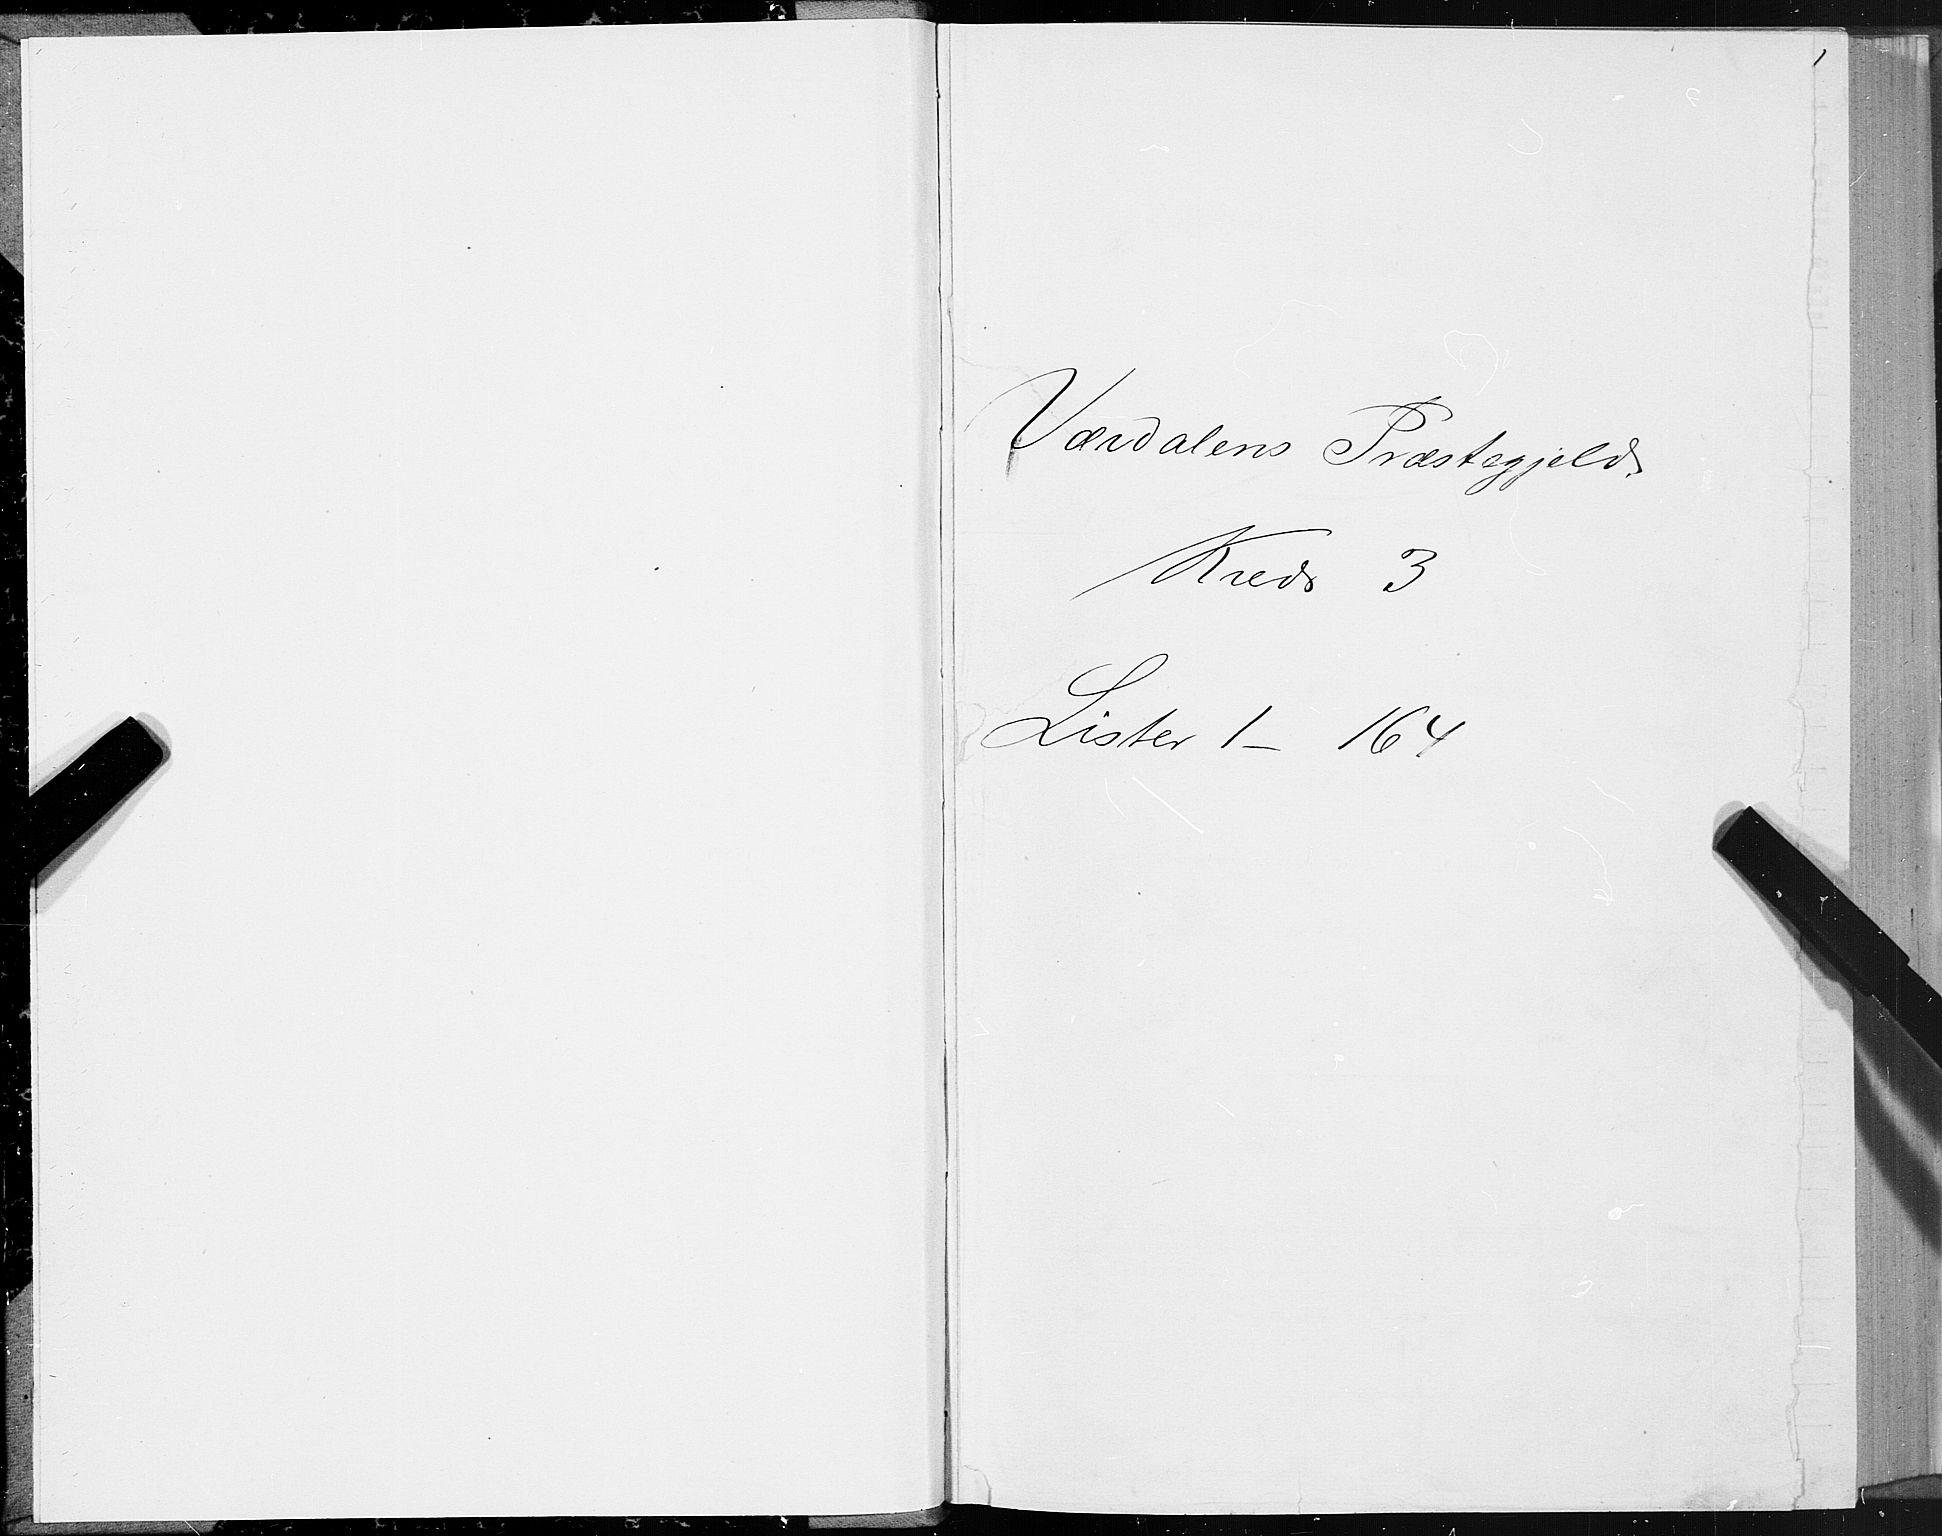 1
Værdalens Præstegjeld.
Kreds 3
Lister 1- 164